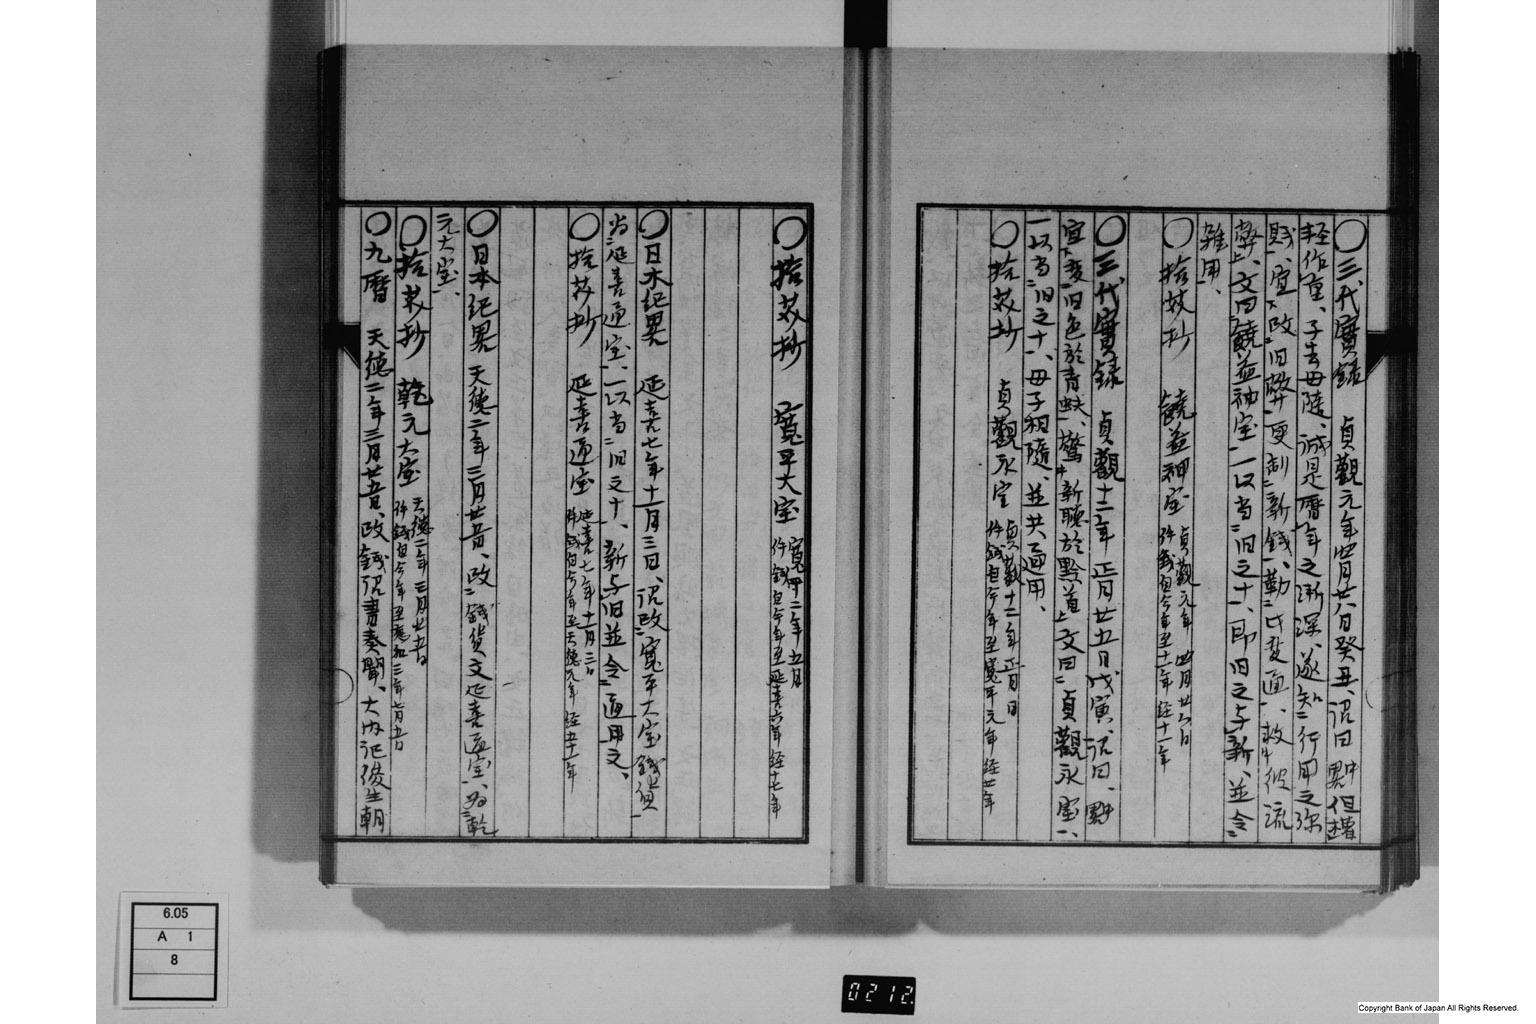 〇三代實録　貞観元年四月廿八日癸丑、詔曰
軽作重、子去母随、誠是暦年之漸深、遂知行用之弥
賎、宜改旧弊更制新銭、
文曰饒益神宝一以当旧之十、即旧之与新、並令
雑用、
〇拾芥抄　饒益神宝　貞観元年四月廿八日
件銭自今年至十一年経十一年
〇三代實録　貞観十二年正月廿五日戊寅、詔曰、
宜変旧色於青蚨、驚新聴於黔首、文曰貞観永宝、
一以当旧之十、母子相随、並共通用、
〇拾芥抄　貞観永宝　貞観十二年正月　日
件銭自今年至寛平元年経廿年
〇拾芥抄　寛平大宝　寛平二年五月
件銭自今年至延喜六年経十七年
〇日本紀畧　延喜七年十一月三日、詔改寛平大宝銭貨
為延喜通宝、一以当旧之十、新与旧並令通用之、
〇拾芥抄　延喜通宝　延喜七年十一月三日
件銭自今年至天徳元年経五十一年
〇日本紀畧　天徳二年三月廿五日、改銭貨文延喜通宝、為乾
元大宝、
〇拾芥抄　乾元大宝　天徳二年三月廿五日
件銭自今年至應和三年七月五日
〇九暦　天徳二年三月廿五日、改銭詔書奏聞、大内記俊生朝
6.05
A 1
8
0212.
Copyright Bank of Japan All Rights Reserved.